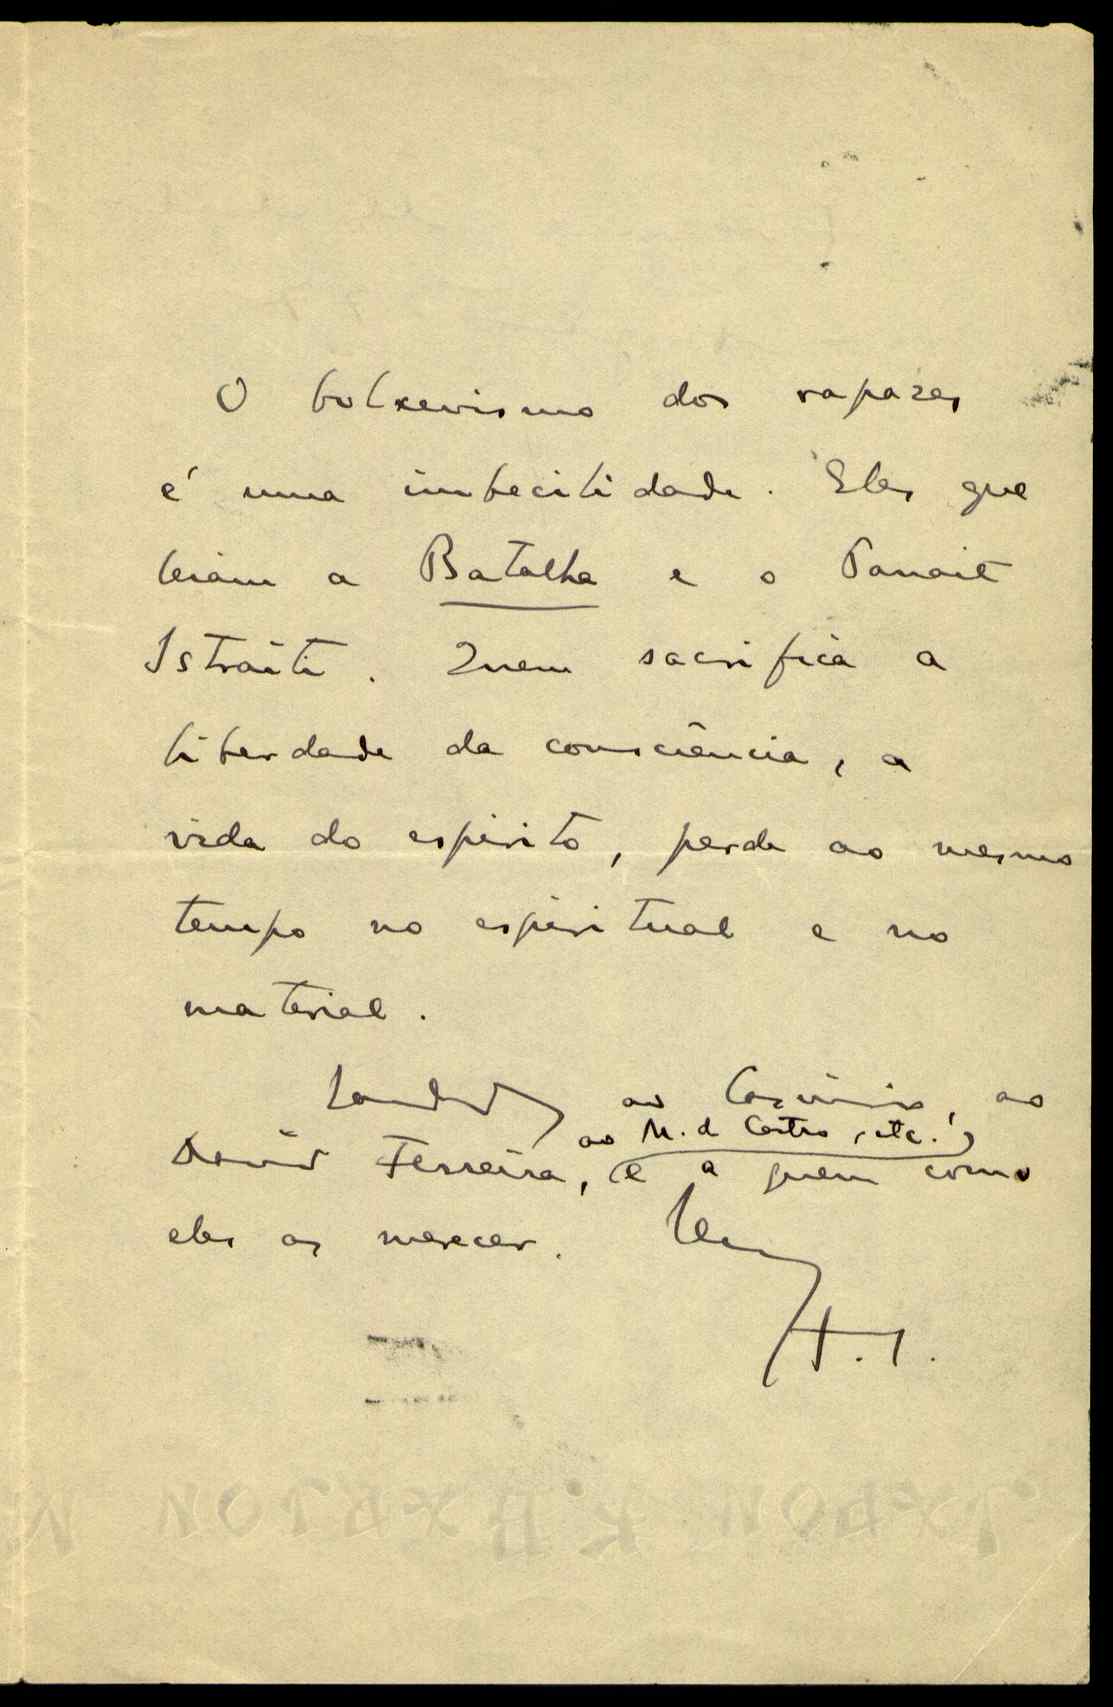 O bolxevismo dos rapazes
é uma imbecilidade. Eles que
leiam a Batalha e o Panait
Istrati. Quem sacrifica a
liberdade da consciência, a
vida do espírito, perde ao mesmo
tempo no espiritual e no
material.
ao Casimiro, ao
ao M. de Castro, etc.
David Ferreira, e a quem como
eles as merecer.